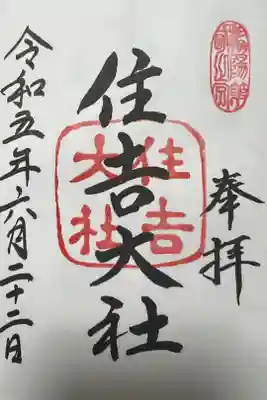 奉拝
住吉大社
住吉
大社
令和五年六月二十二日